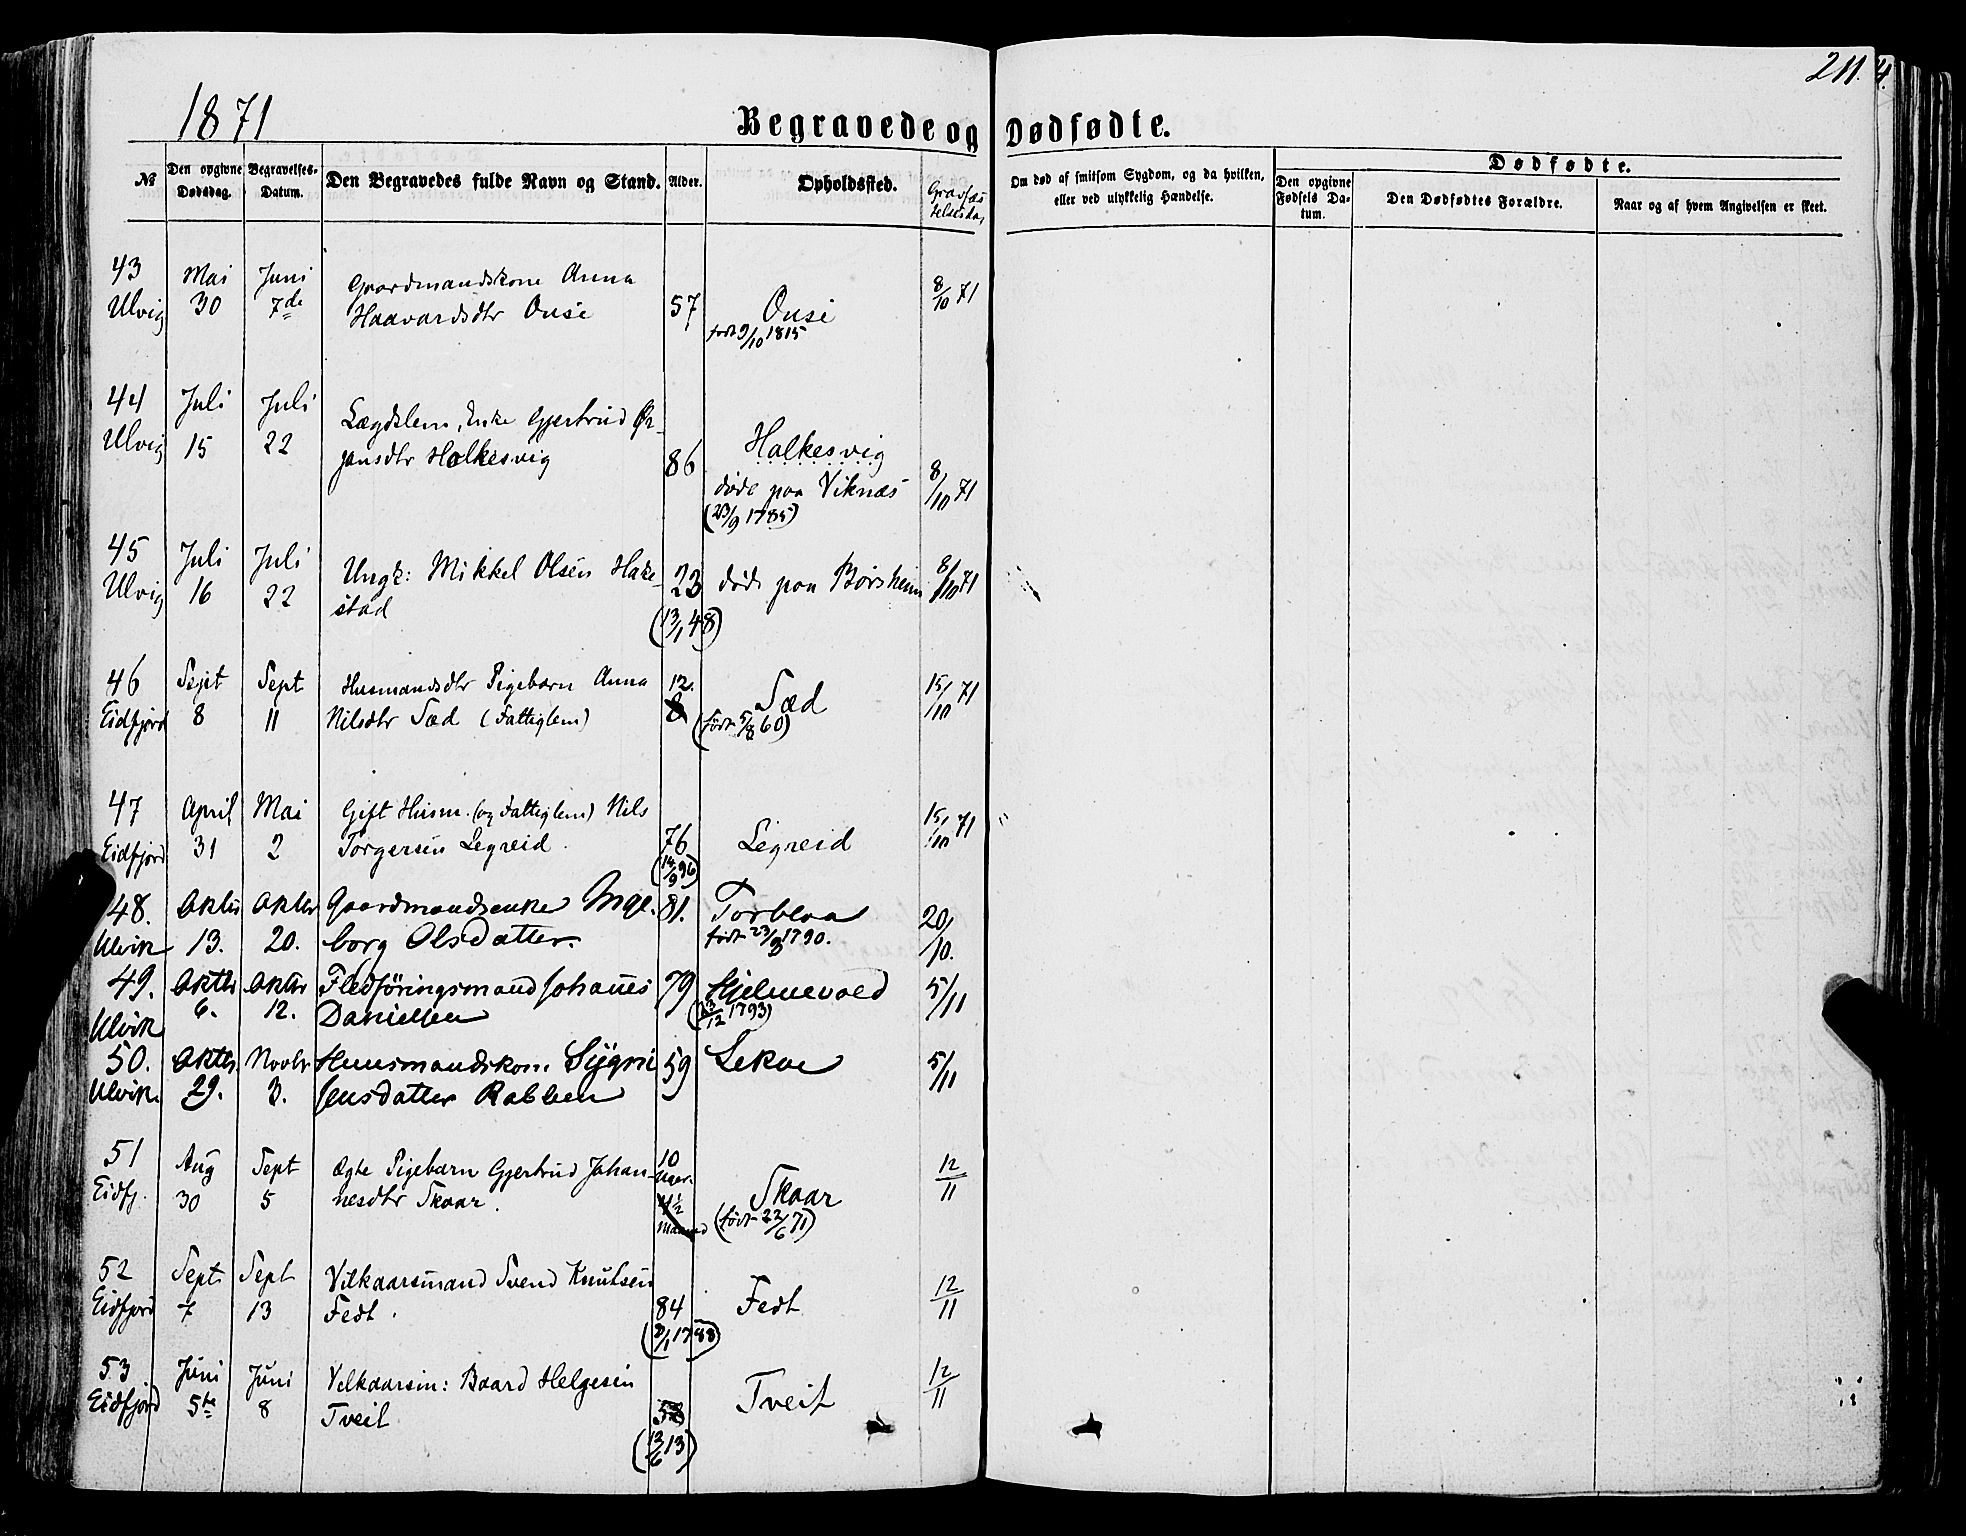 1871
211.
Begravede og Dødfødte.
№
Den opgivne Dødsdag.
Begravelses-Datum.
Den Begravedes fulde Navn og Stand.
Alder.
Opholdssted.
Om død af smitsom Sygdom, og da hvilken,
eller ved ulykkelig Hændelse.
Dødfødte.
Den opgivne Fødsels Datum.
Den Dødfødtes Forældre.
Naar og af hvem Angivelsen er skeet.
43 Mai Juni Gaardmandskone Anna 8/10 71
Ulvig 30 7de Haavardsdtr Onsi 57 Onsi
født 9/10 1815
44 Juli Juli Lægdslem, Enke Gjertrud Ør-
Ulvig 15 22 jansdtr Halkesvig 86 Halkesvig 8/10 71
døde paa Viknæs
(23/9 1785)
45 Juli Juli Ungk: Mikkel Olsen Hake- 23 døde paa Børsheim 8/10 71
Ulvig 16 22 stad
(13/1 48)
46 Sept Sept Husmandsdtr Pigebarn Anna 12. Sæd 15/10 71
Eidfjord 8 11 Nilsdtr Sæd (Fattiglem) 8 (født 5/8 60)
47 April Mai Gift Husm. (og Fattiglem) Nils 15/10 71
Eidfjord 31 2 Torgersen Legreid. 76 Legreid
(14/9 96)
48. Oktbr Oktbr Gaardmandsenke Inge- 81. Torblaa 20/10.
Ulvik 13. 20. borg Olsdatter. født 23/3 1790.
49. Oktbr Oktbr Fledføringsmand Johanes 79 Hjelmevold 5/11
Ulvik 6. 12. Danielsen (23/12 1793)
50. Oktbr. Novbr Huusmandskone Sygni 59 Lekve 5/11
Ulvik. 29. 3. Jensdatter Rabben
51 Aug Sept Ægte Pigebarn Gjertrud Johan- 10 Uger. 12/11
Eidfj. 30 5 nesdtr Skaar. 4½ Maaned Skaar
(født 22/6 71)
52 Sept. Sept Vilkaarsmand Svend Knutsen 12/11
Eidfjord 7 13 Fedt. 84 Fedt
53 Juni Juni Vilkaarsm: Baard Helgesen 12/11
Eidfjord 5te 8 Tveit 58 Tveit
(13/6 13)